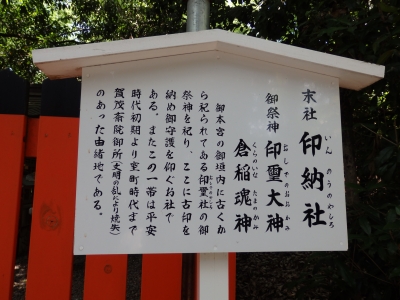 末社 印納社
いんのうのやしろ
御祭神 印璽大神
おしでのおおかみ
倉稲魂神
くらのいなたまのかみ
御本宮の御垣内に古くか
ら祀られてある印璽社の御
祭神を祀り、ことに古印を
納め御守護を仰ぐお社で
ある。またこの一帯は平安
時代初期より室町時代まで
賀茂斎院御所(文明の乱により焼失)
のあった由緒地である。